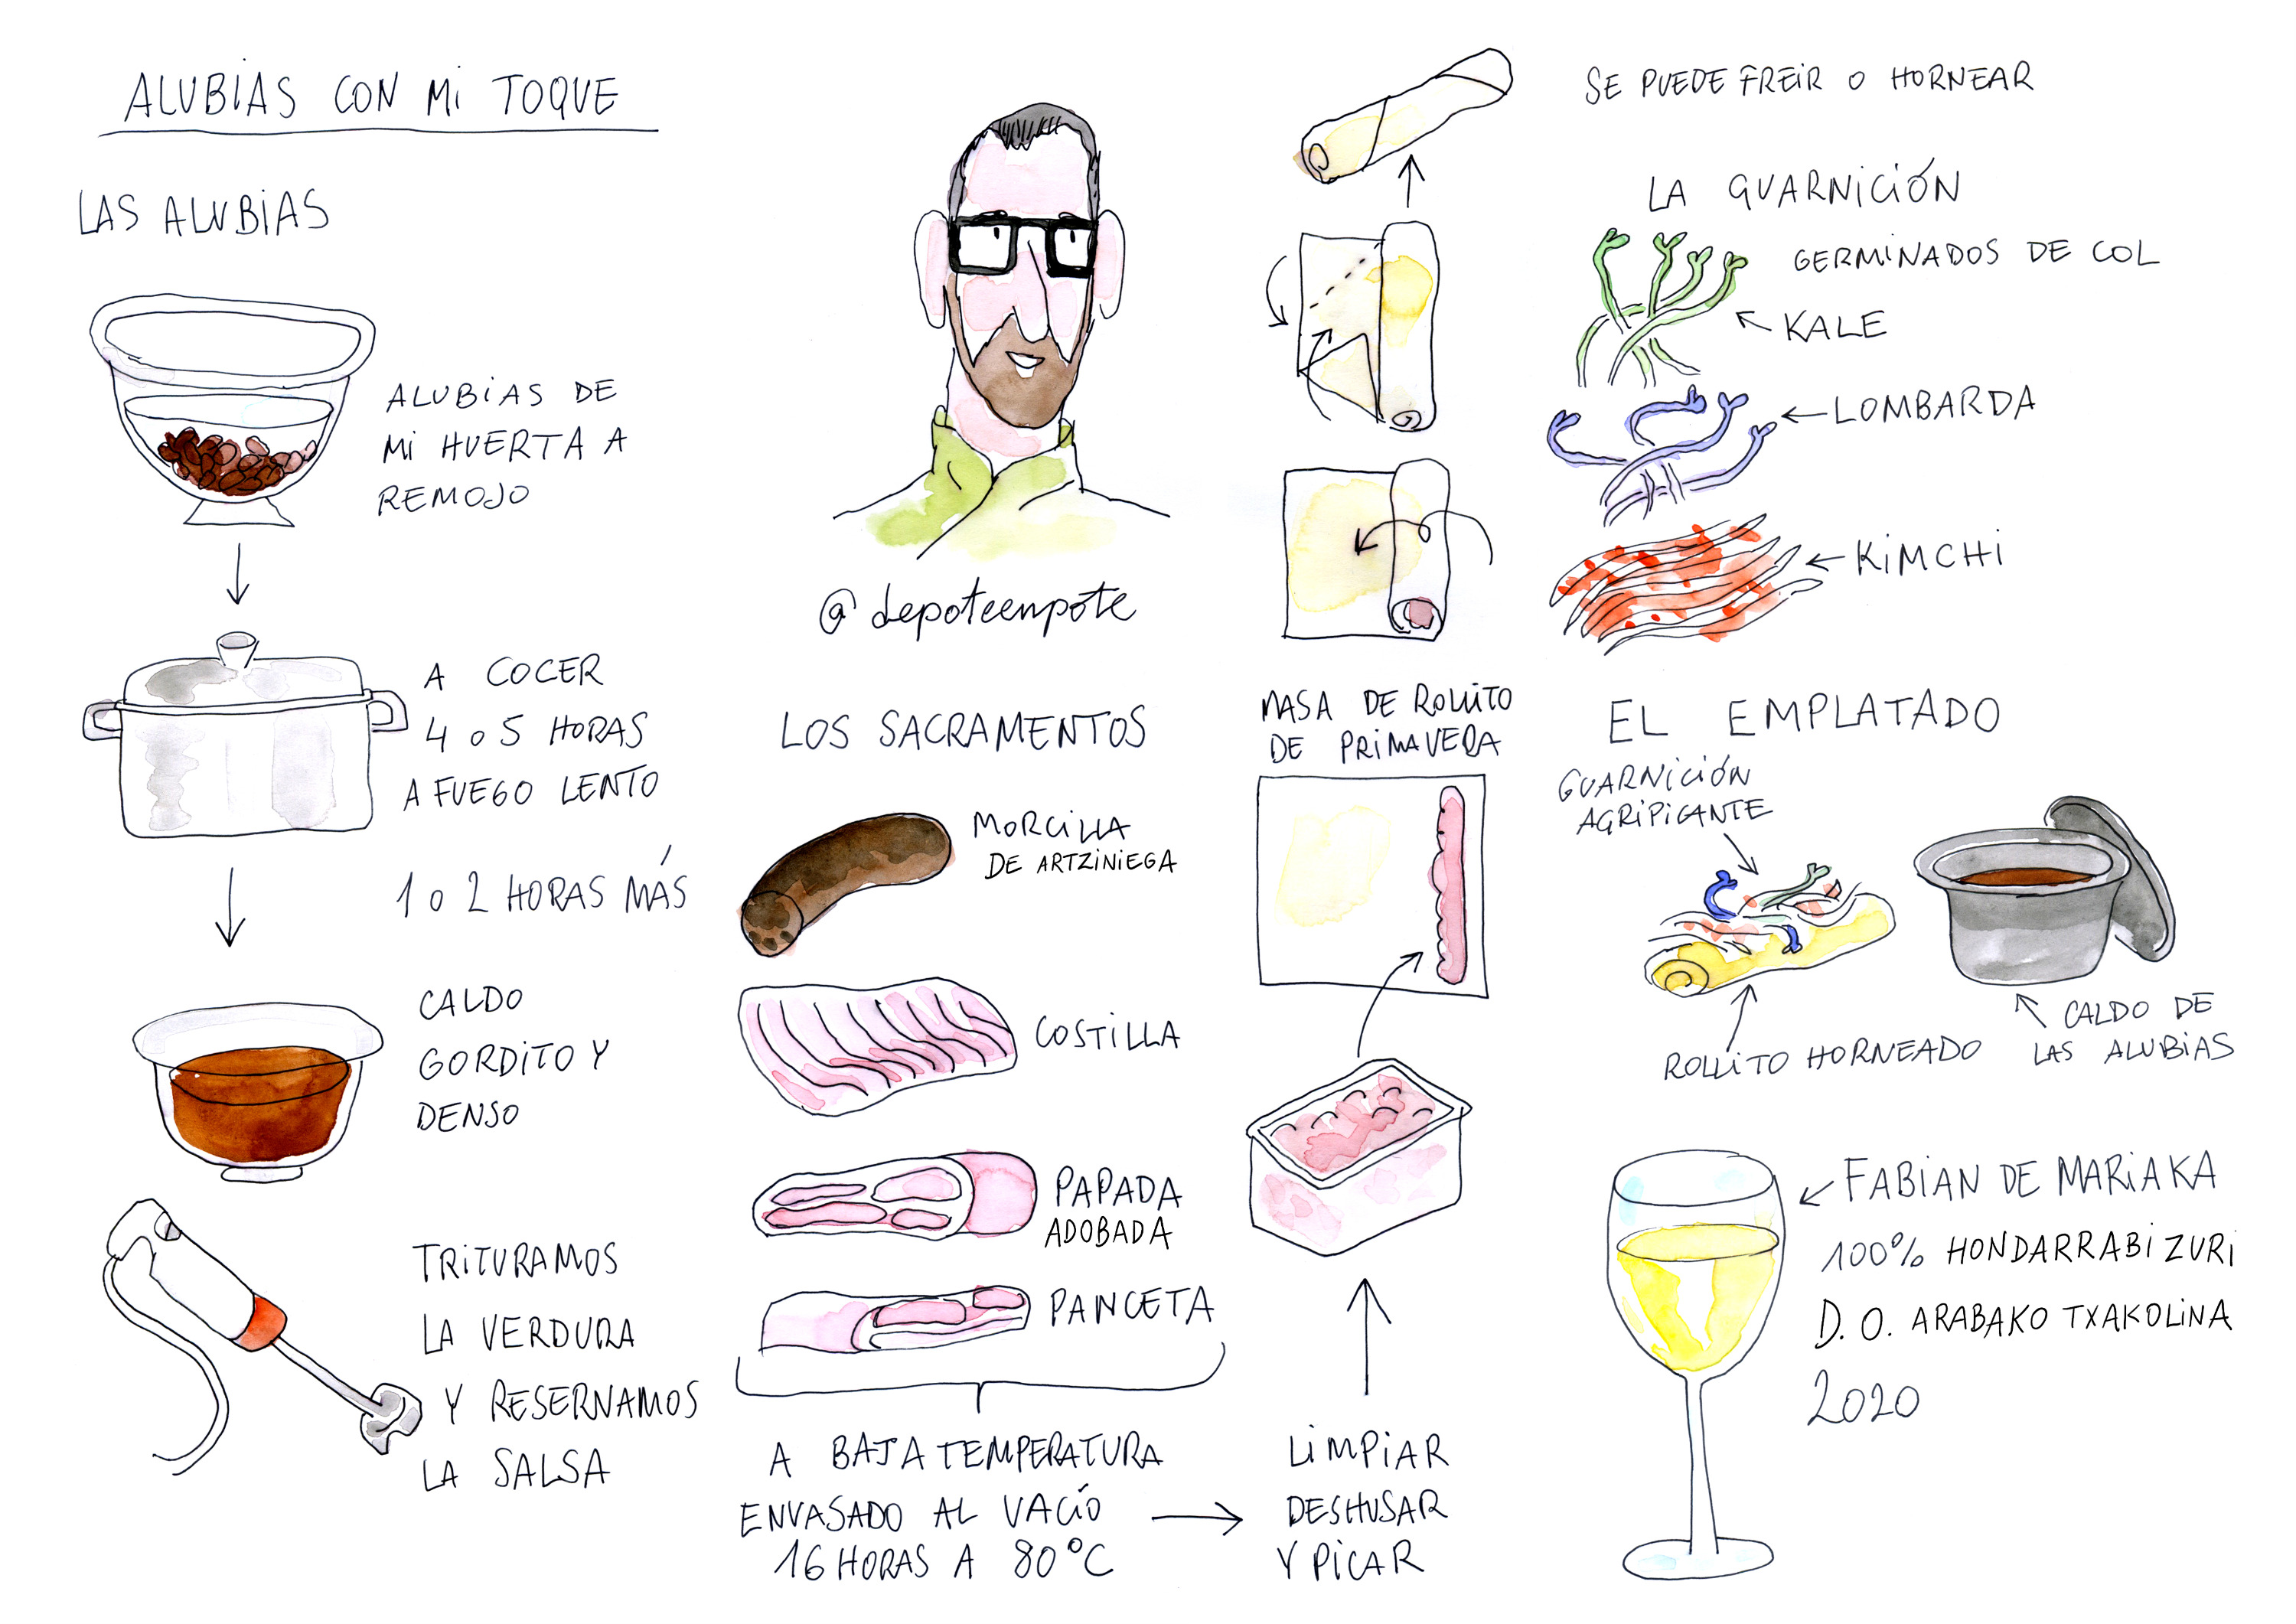 ALUBIAS CON MI TOQUE
LAS ALUBIAS
ALUBIAS DE
MI HUERTA A
REMOJO
A COCER
4 o 5 HORAS
A FUEGO LENTO
1 o 2 HORAS MÁS
CALDO
GORDITO Y
DENSO
TRITURAMOS
LA VERDURA
Y RESERNAMOS
LA SALSA
@depoteenpote
LOS SACRAMENTOS
MORCILLA
DE ARTZINIEGA
COSTILLA
PAPADA
ADOBADA
PANCETA
A BAJA TEMPERATURA
ENVASADO AL VACÍO
16 HORAS A 80°C
LIMPIAR
DESHUSAR
Y PICAR
MASA DE ROLLITO
DE PRIMAVERA
SE PUEDE FREIR O HORNEAR
LA GUARNICIÓN
GERMINADOS DE COL
KALE
LOMBARDA
KIMCHI
EL EMPLATADO
GUARNICIÓN
AGRIPICANTE
ROLLITO HORNEADO
CALDO DE
LAS ALUBIAS
FABIAN DE MARIAKA
100% HONDARRABI ZURI
D.O. ARABAKO TXAKOLINA
2020